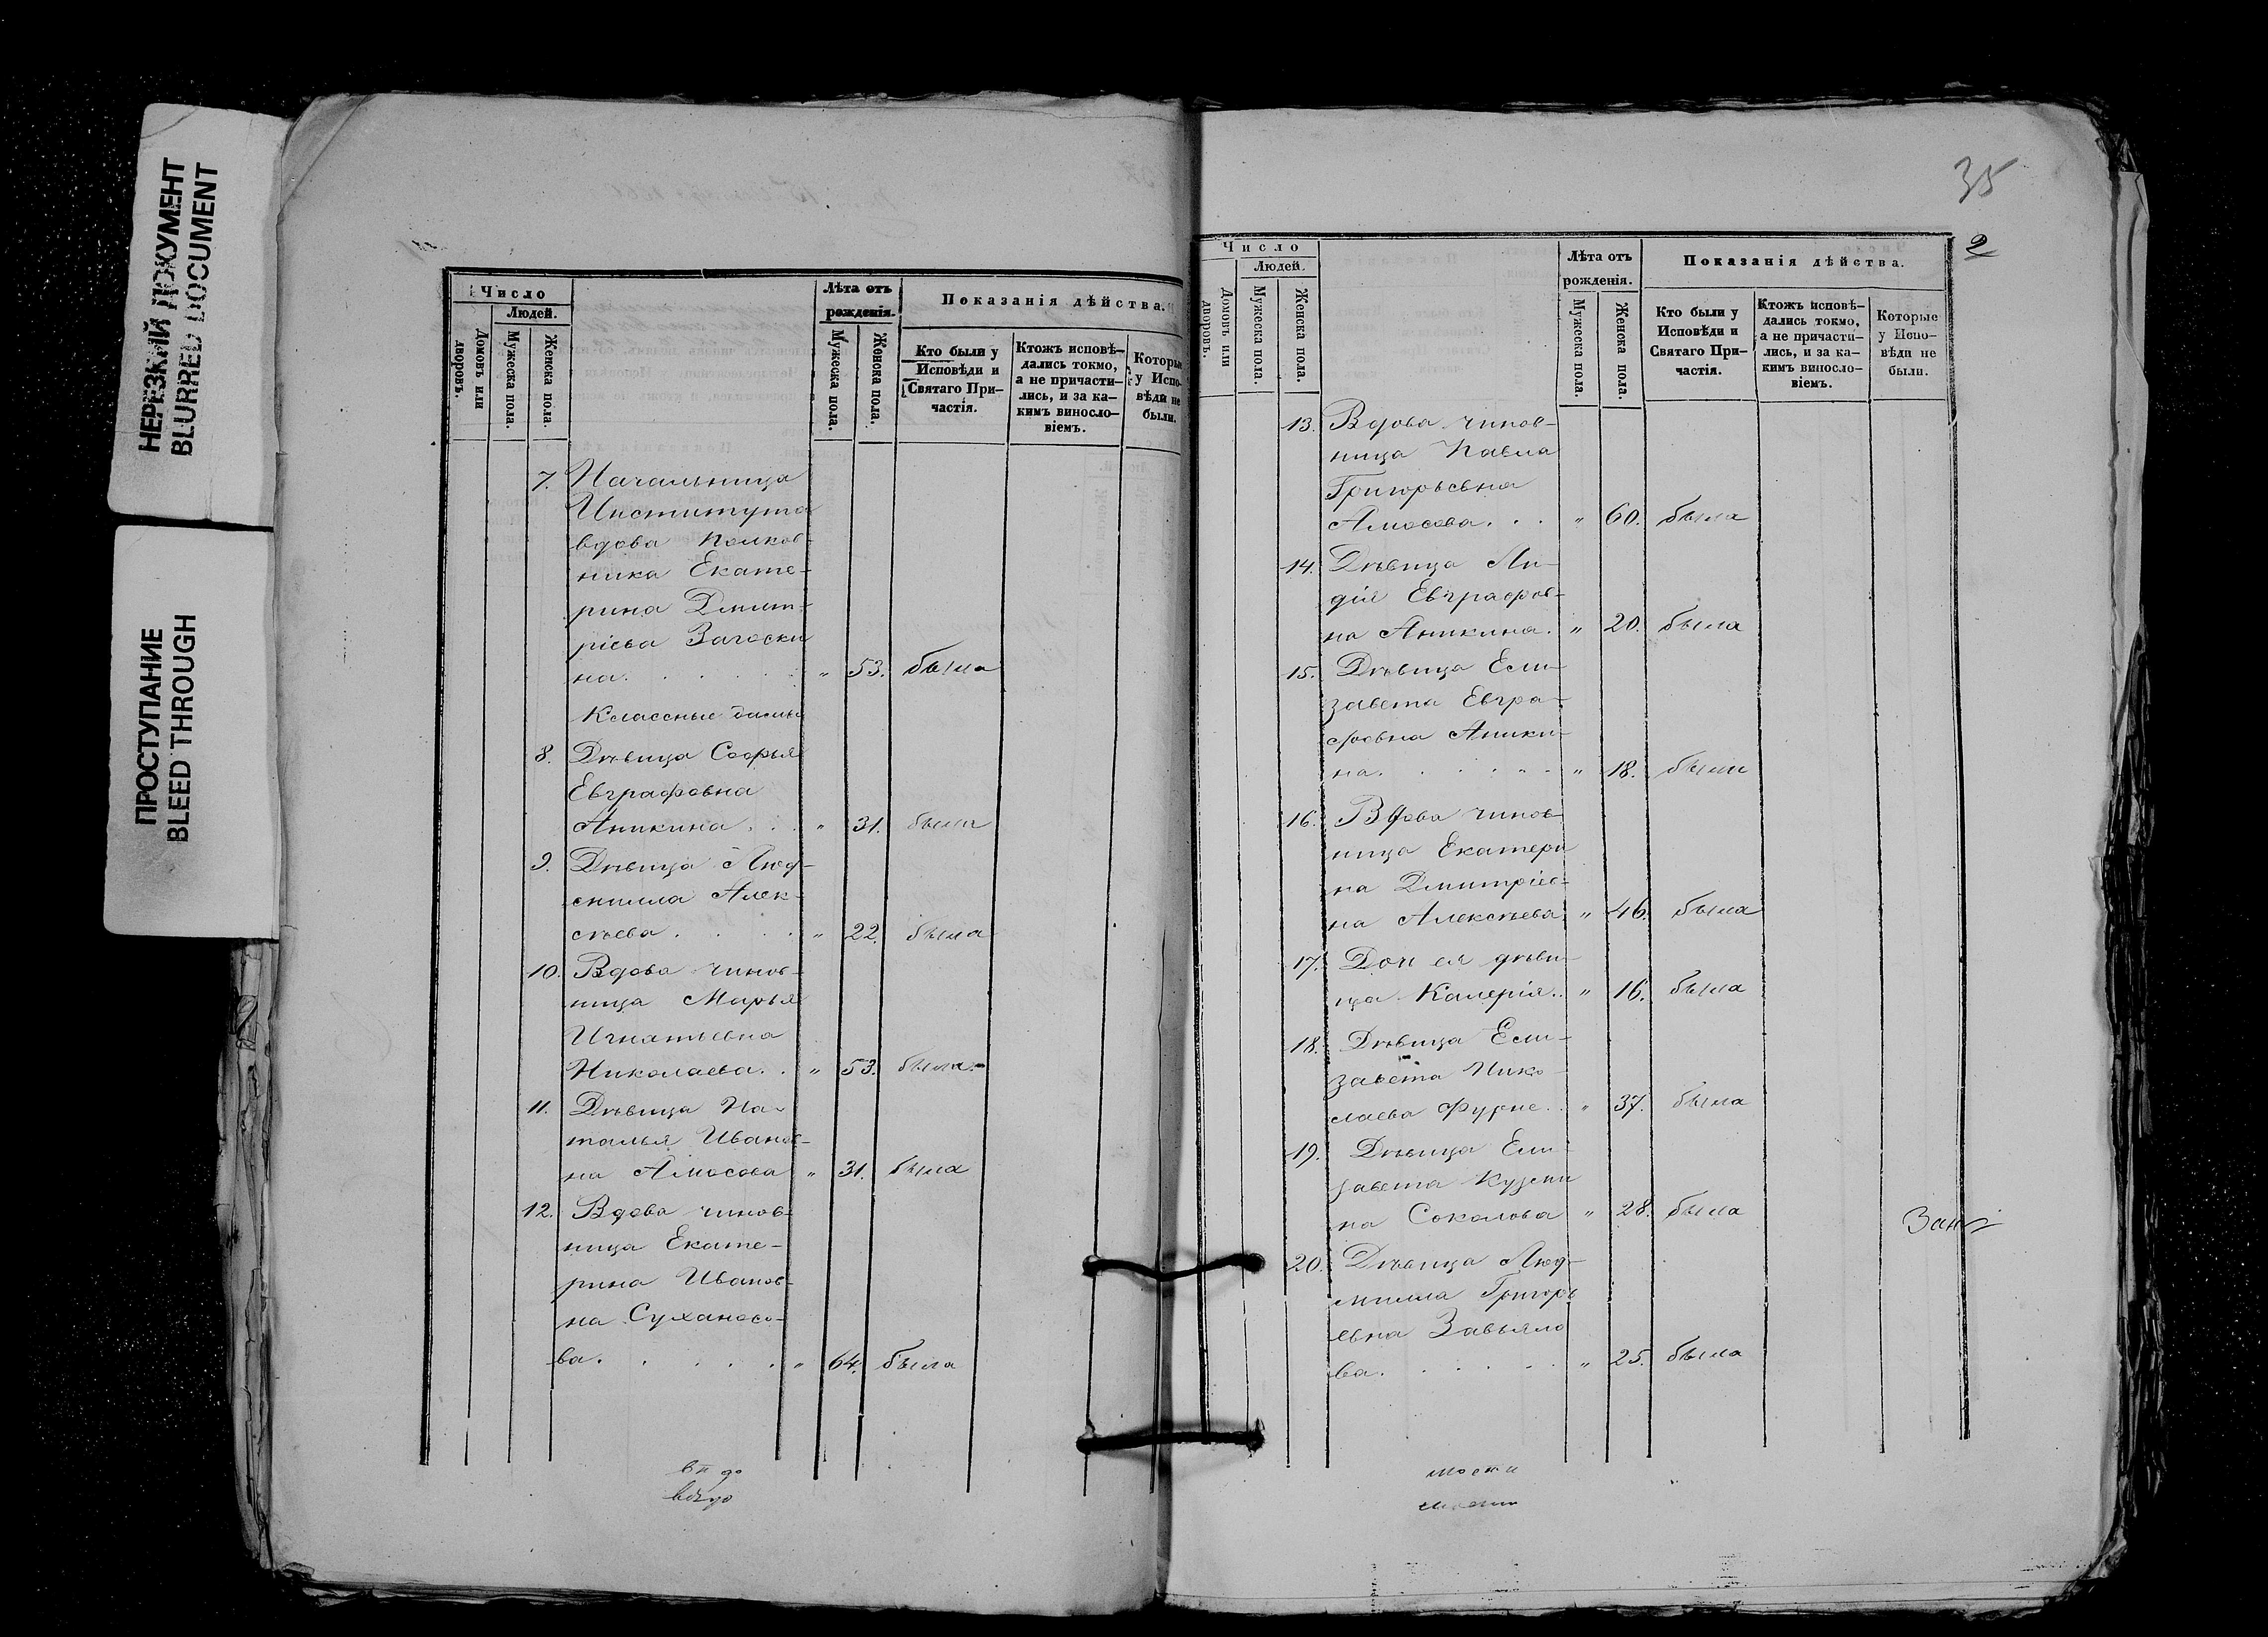 НЕРЕЗКИЙ ДОКУМЕНТ
BLURRED DOCUMENT
ПРОСТУПАНИЕ
BLEED THROUGH
Число
Людей.
Домовъ или дворовъ.
Мужеска пола.
Женска пола.
Лѣта отъ рожденія.
Мужеска пола.
Женска пола.
Показанія дѣйства.
Кто были у
Исповѣди и
Святаго При-
частія.
Ктожъ исповѣ-
дались токмо,
а не причасти-
лись, и за ка-
кимъ виносло-
віемъ.
Которые
у Испо-
вѣди не
были.
7. Начальница
Института
вдова полков-
ника Екате-
рина Дмит-
ріева Загоски
на. . . . . „ 53. была
Классные дамы
8. Дѣвица Софья
Евграфовна
Аникина . . . „ 31. была
9. Дѣвица Люд-
милла Алек-
сѣева . . . . „ 22. была
10. Вдова чинов-
ница Марья
Игнатьевна
Николаева. . „ 53. была.
11. Дѣвица На-
талья Иванов-
на Амосова „ 31. была
12. Вдова чинов-
ница Екате-
рина Иванов-
на Суханосо-
ва. . . . . . „ 64. была
35
2
Число
Людей.
Домовъ или дворовъ.
Мужеска пола.
Женска пола.
Лѣта отъ
рожденія.
Мужеска пола.
Женска пола.
Показанія дѣйства.
Кто были у
Исповѣди и
Святаго При-
частія.
Ктожъ исповѣ-
дались токмо,
а не причасти-
лись, и за ка-
кимъ виносло-
віемъ.
Которые
у Испо-
вѣди не
были.
13. Вдова чинов-
ница Павла
Григорьевна
Амосова. . . „ 60. была
14. Дѣвица Ли-
дія Евграфов-
на Аникина. „ 20. была
15. Дѣвица Ели-
завета Евгра-
фовна Аники-
на. . . . . . „ 18. была
16. Вдова чинов-
ница Екатери
на Дмитріев-
на Алексѣева „ 46. была
17. Доч ея дѣви-
ца Калерія.. „ 16. была
18. Дѣвица Ели-
завета Нико-
лаева Фурне. . „ 37. была
19. Дѣвица Ели-
завета Кузми
на Соколова „ 28. была
20. Дѣвица Люд-
милла Григорь
евна Завьяло
ва. . . . . . „ 25. была